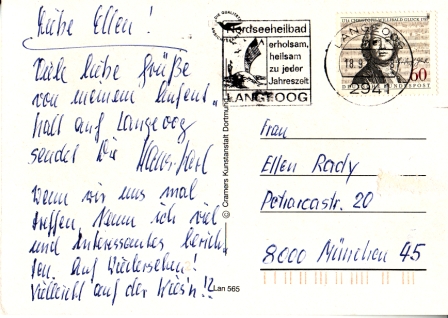 Liebe Ellen!
Viele liebe Grüße
von meinem Aufent-
halt auf Langeoog
sendet Dir Klaus-Karl
Wenn wir uns mal
treffen, kann ich viel
und Interessantes berich-
ten. Auf Wiedersehen!
Vielleicht auf der Wies'n!?
© Cramers Kunstanstalt Dortmund
Lan 565
Nordseeheilbad
erholsam,
heilsam
zu jeder
Jahreszeit
LANGEOOG
LANGEOOG
18.9.
2941
60
DEUTSCHE BUNDESPOST
Frau
Ellen Rady
Petrarcastr. 20
8000 München 45